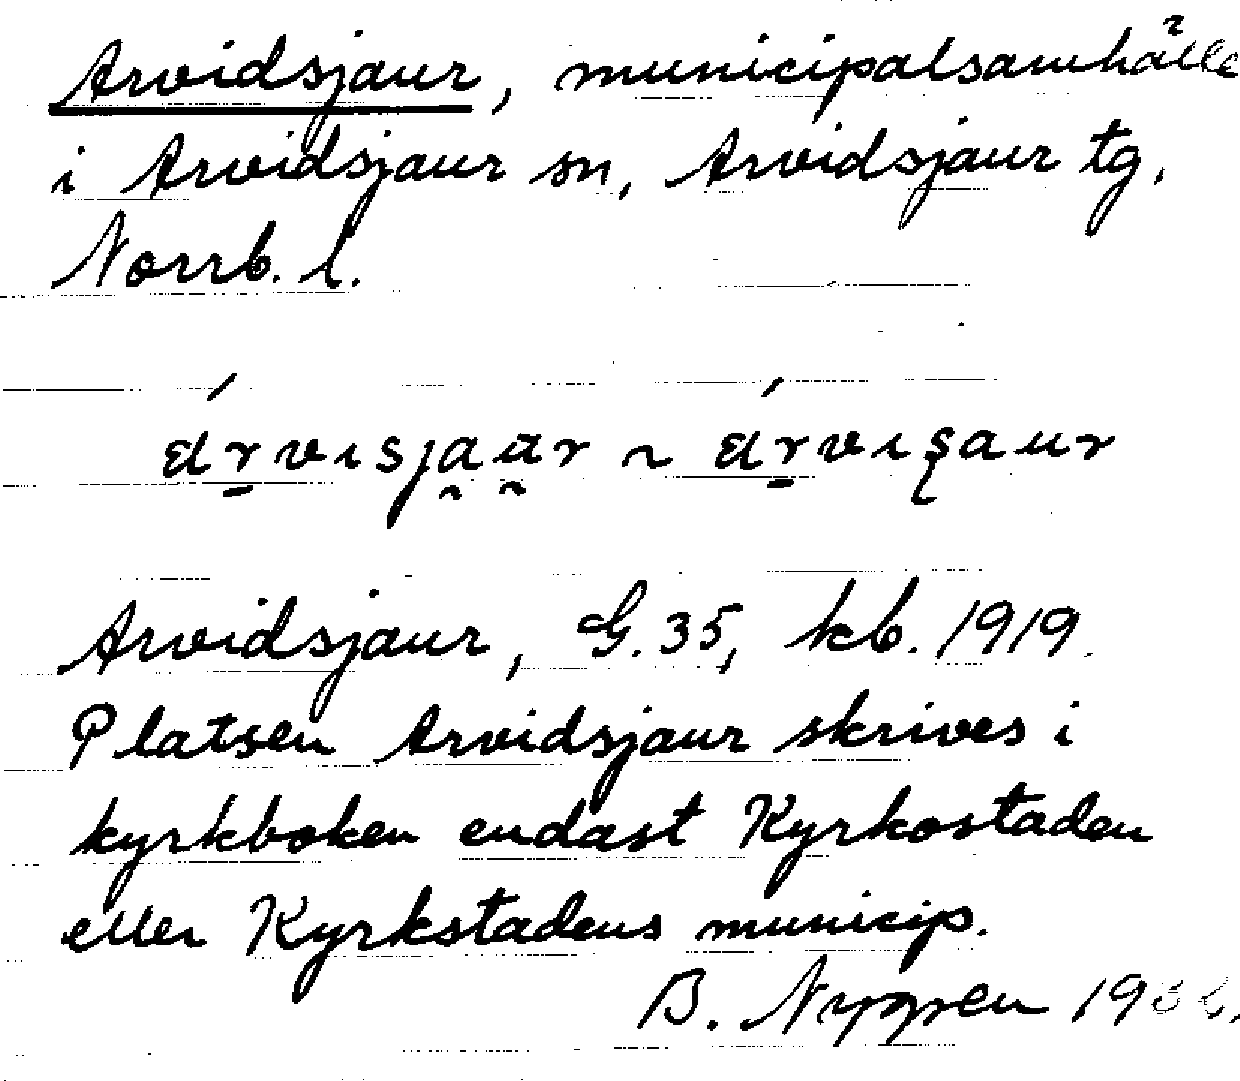 Arvidsjaur, municipalsamhälle
i Arvidsjaur sn, Arvidsjaur tg,
Norrb. l.
Arvidsjaur, G. 35, kb. 1919.
Platsen Arvidsjaur skrives i
kyrkboken endast Kyrkostaden
eller Kyrkstadens municip.
B. Nygren